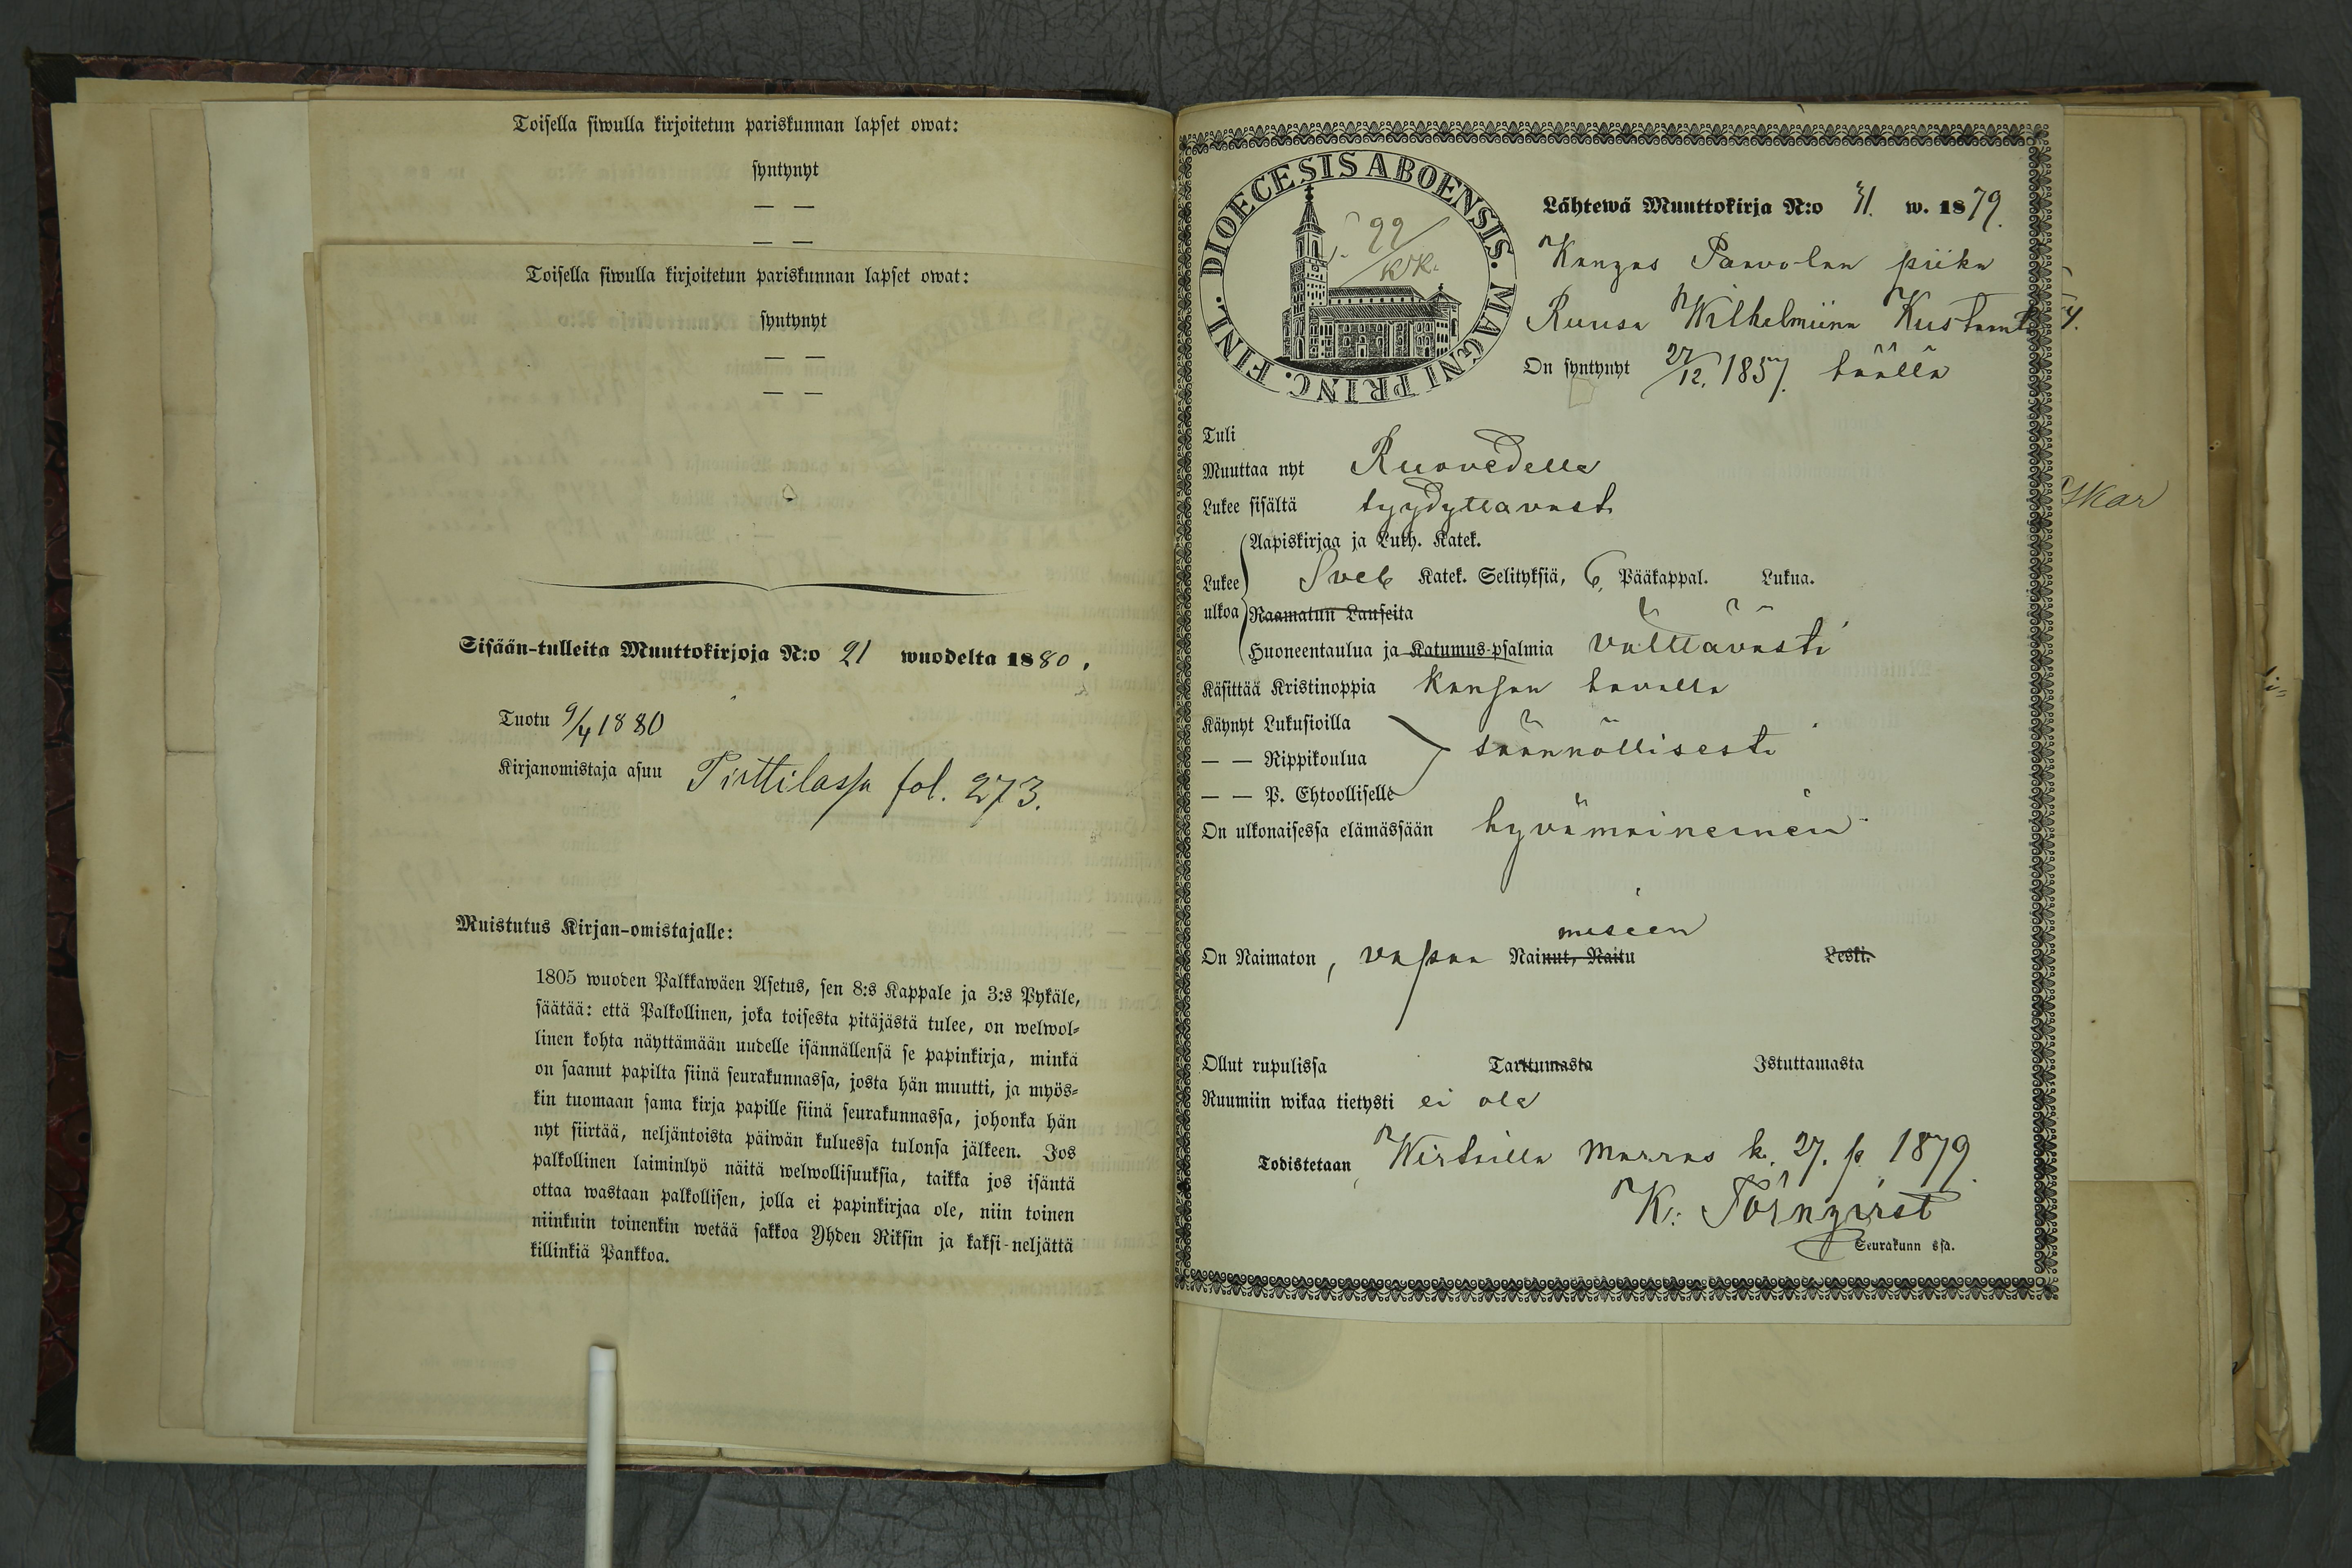 Toisella siwulla kirjoitetun pariskunnan lapset owat:
syntynyt
— —
— —
Toisella siwulla kirjoitetun pariskunnan lapset owat:
syntynyt
— —
— —
Sisään-tulleita Muuttokirjoja N:o 21 wuodelta 1880.
Tuotu 9/4 1880
Kirjanomistaja asuu Pirttilassa fol. 273.
Muistutus Kirjan-omistajalle:
1805 wuoden Palkkawäen Asetus, sen 8:s Kappale ja 3:s Pykäle,
säätää: että Palkollinen, joka toisesta pitäjästä tulee, on welwol-
linen kohta näyttämään uudelle isännällensä se papinkirja, minkä
on saanut papilta siinä seurakunnassa, josta hän muutti, ja myös-
kin tuomaan sama kirja papille siinä seurakunnassa, johonka hän
nyt siirtää, neljäntoista päiwän kuluessa tulonsa jälkeen. Jos
palkollinen laiminlyö näitä welwollisuuksia, taikka jos isäntä
ottaa wastaan palkollisen, jolla ei papinkirjaa ole, niin toinen
niinkuin toinenkin wetää sakkoa Yhden Riksin ja kaksi-neljättä
killinkiä Pankkoa.
DIOECESIS ABOENSIS. MAGNI PRINC. FINL.
22
KK.
Lähtewä Muuttokirja N:o 41. w. 1879.
Kangas Paavolan piika
Ruusa Wilhelmiina Kustaant
On syntynyt 27/12. 1857. täällä
Tuli
Muuttaa nyt Ruovedelle
Lukee sisältä tyydyttävast.
Aapiskirjaa ja Luth. Katek.
Lukee Sveb Katek. Selityksiä, 6. Pääkappal. Lukua.
ulkoa Raamatun Lauseita
Huoneentaulua ja Katumus-psalmia välttävästi
Käsittää Kristinoppia kansan tavalla
Käynyt Lukusioilla
— — Rippikoulua säännöllisesti
— — P. Ehtoolliselle
On ulkonaisessa elämässään hyvämaineinen
miseen
On Naimaton, vapaa Nainut, Naitu Leski.
Ollut rupulissa Tarttumasta Istuttamasta
Ruumiin wikaa tietysti ei ole
Todistetaan Wirtailla Marras k. 27. p. 1879.
K. Törnqvist
Seurakunn ssa.
Skar